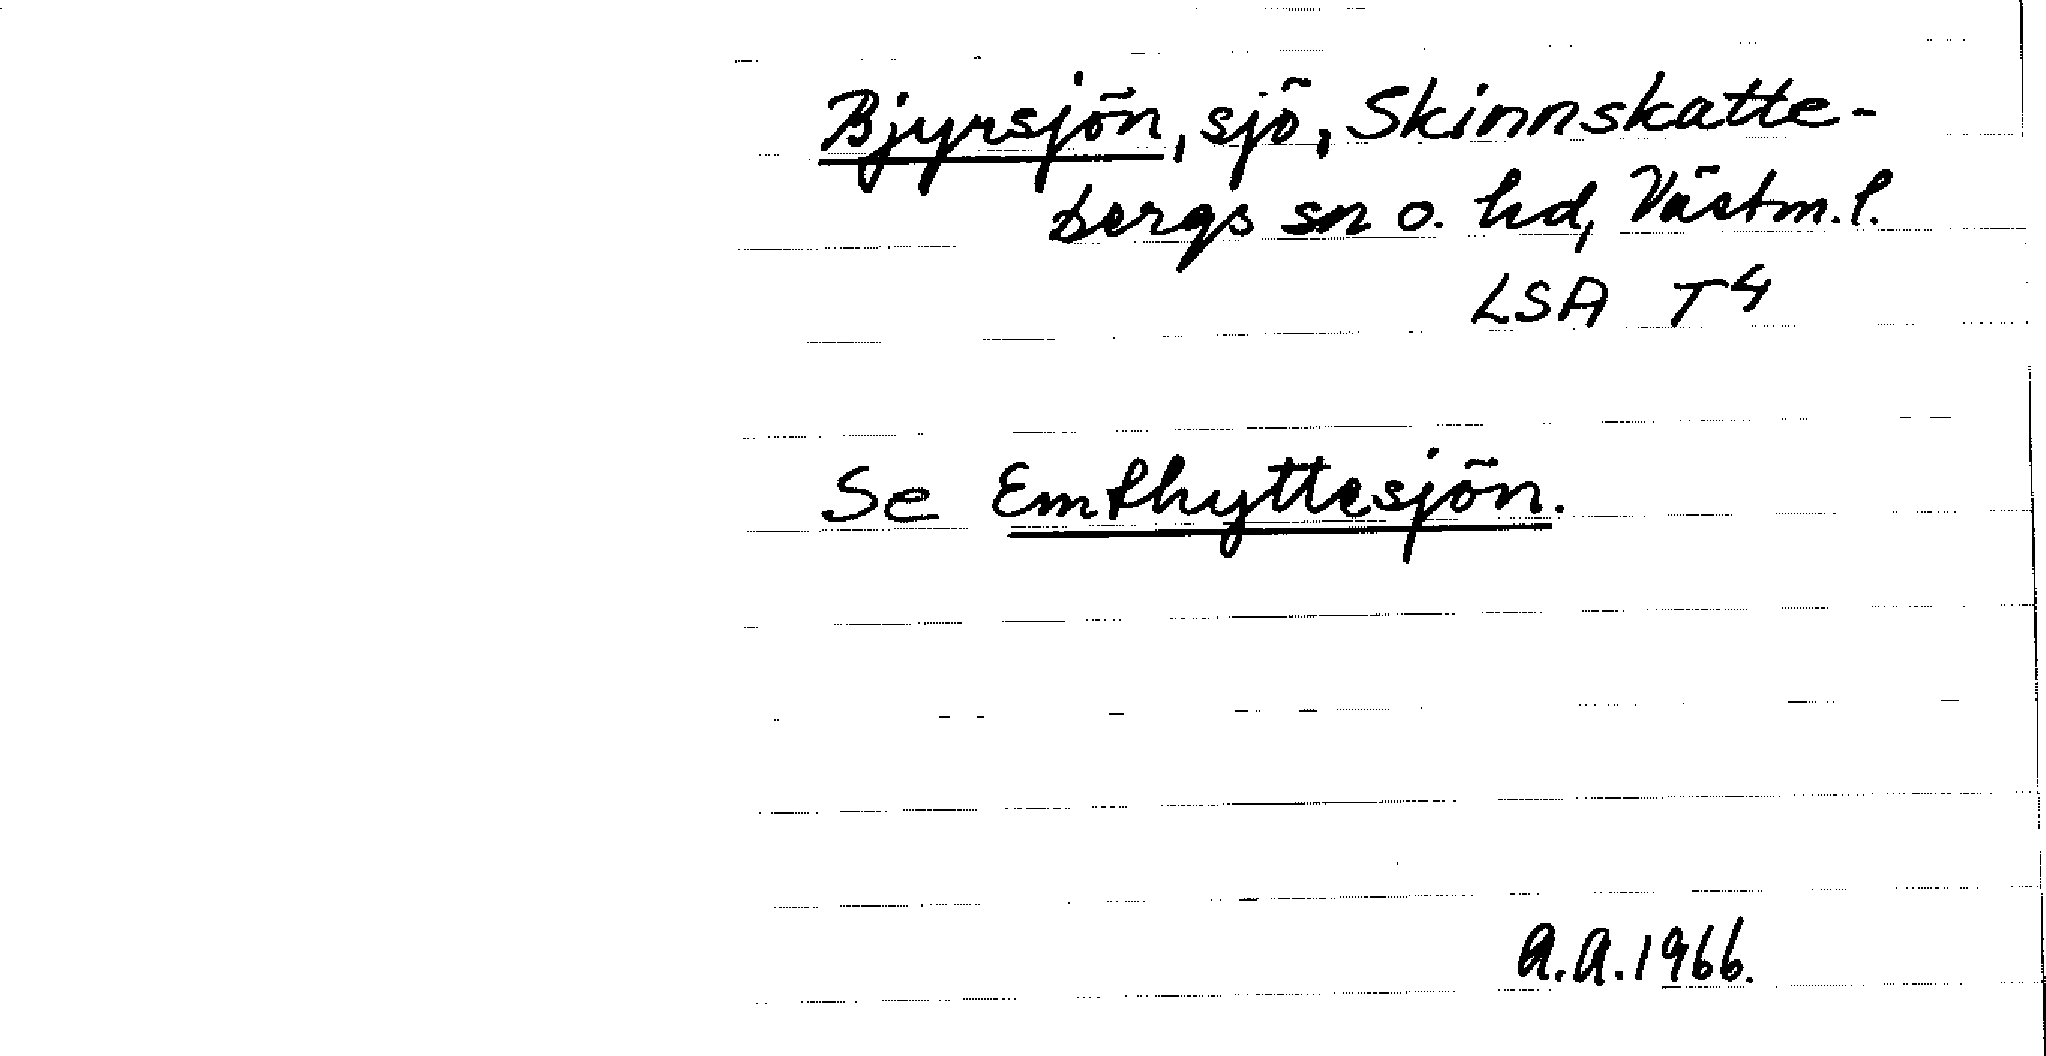 Bjyrsjön, sjö, Skinnskatte-
bergs sn o. hd, Västm. l.
LSA T4
Se Emthyttesjön.
A.A. 1966.